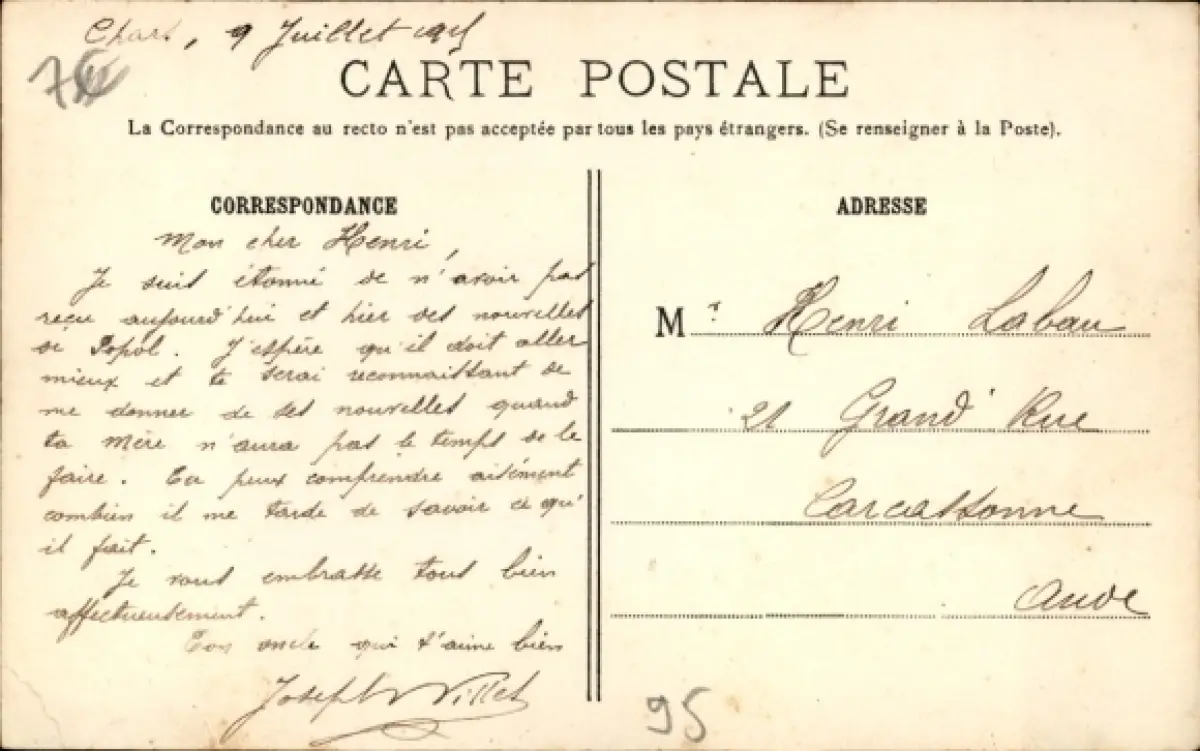 Chars, 9 Juillet 1915
CARTE POSTALE
La Correspondance au recto n'est pas acceptée par tous les pays étrangers. (Se renseigner à la Poste).
CORRESPONDANCE
Mon cher Henri,
Je suis étonné de n'avoir pas
reçu aujourd'hui et hier des nouvelles
de Popol. J'espère qu'il doit aller
mieux et te serai reconnaissant de
me donner de ses nouvelles quand
ta mère n'aura pas le temps de le
faire. Tu peux comprendre aisément
combien il me tarde de savoir ce qu'
il fait.
Je vous embrasse tous bien
affectueusement.
Ton oncle qui t'aime bien
Joseph Villet
ADRESSE
Mr Henri Labau
21 Grand Rue
Carcassonne
Aude
95